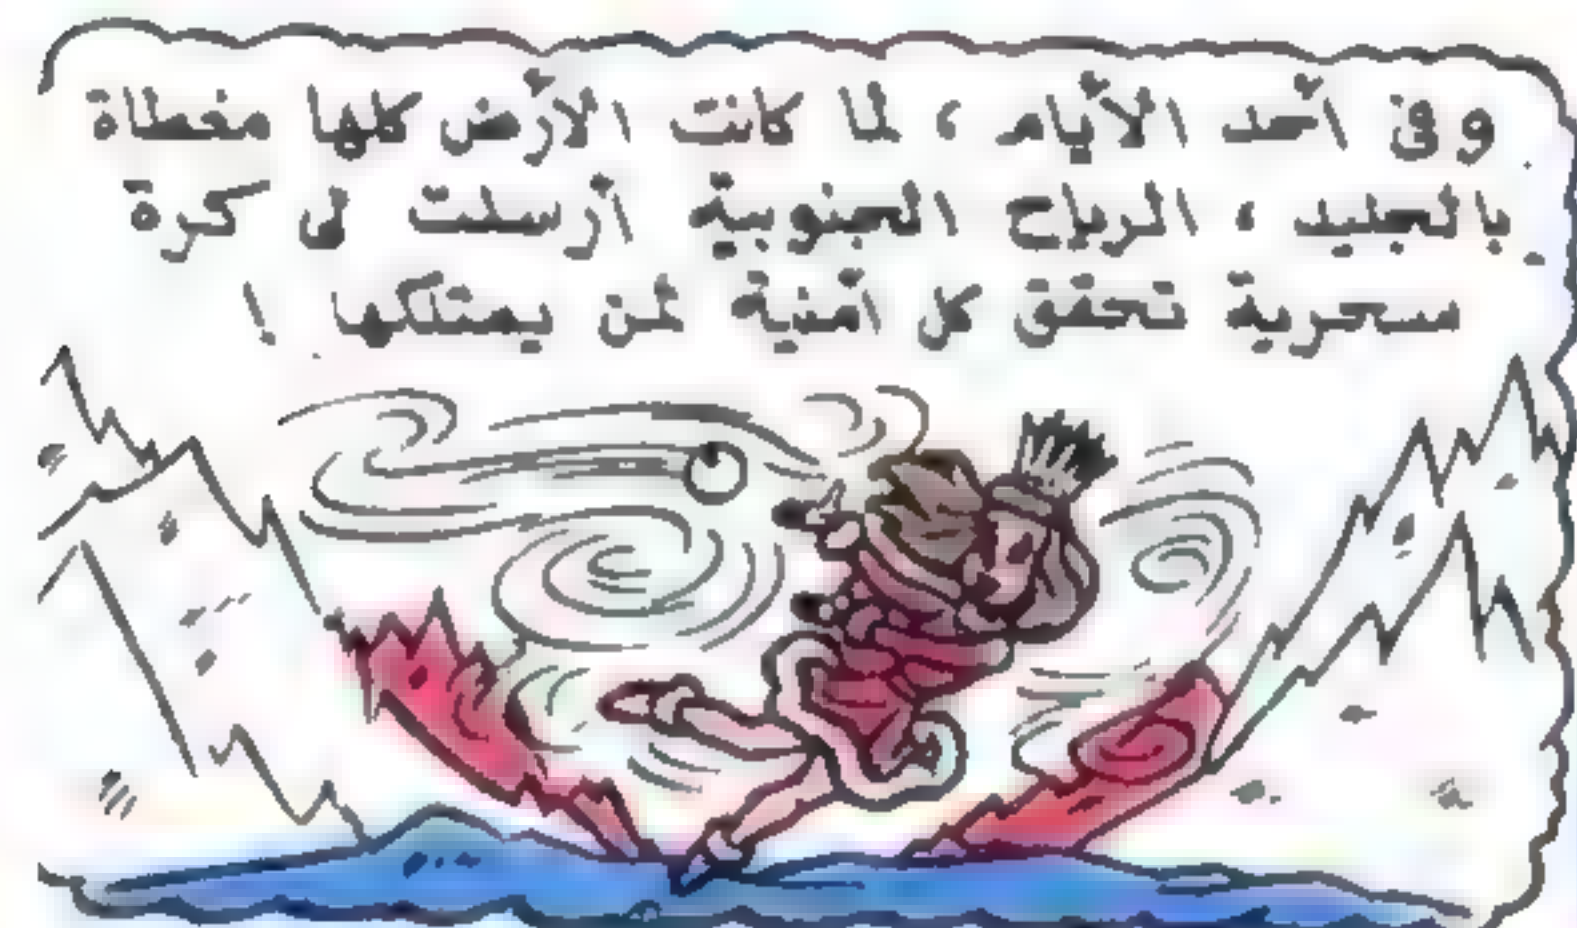 وفى أحد الأيام ، لما كانت الأرض كلها مغطاة
بالجليد ، الرياح الجنوبية أرسلت لى كرة
سحرية تحقق كل أمنية لمن يمتلكها !